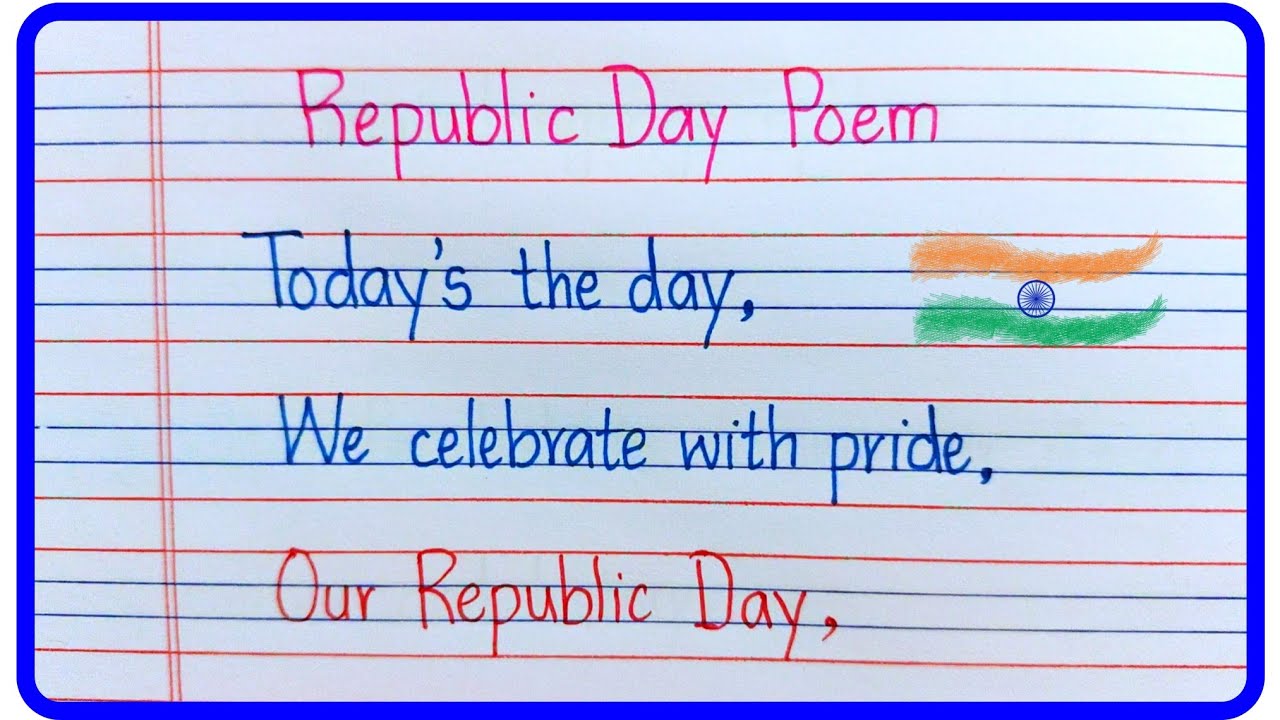 Republic Day Poem
Today's the day,
We celebrate with pride,
Our Republic Day,